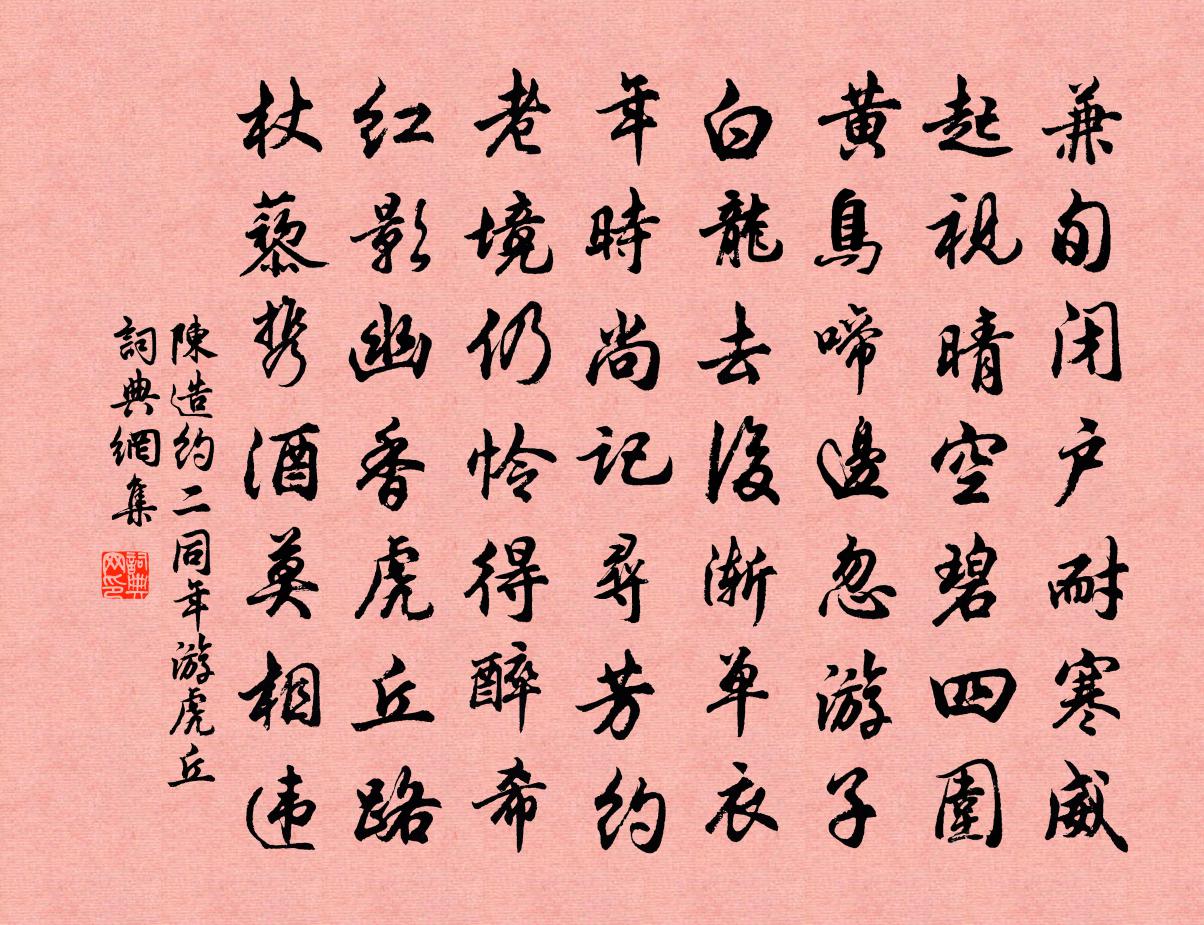 兼旬闭户耐寒威
起视晴空碧四圍
黄鳥啼邊忽游子
白龍去後漸单衣
年時尚记尋芳约
老境仍怜得醉希
红影幽香虎丘路
杖藜携酒莫相违
陳造约二同年游虎丘
詞典網集
詞典网印